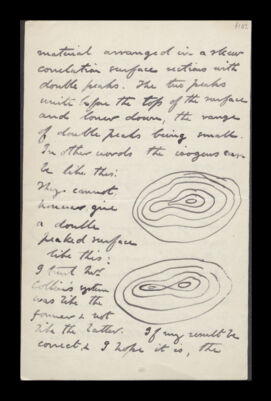 material arranged in a skew
correlation surface sections with
double peaks. The two peaks
unite before the top of the surface
and lower down, the range
of double peaks being small.
In other words the isogens can
be like this:
They cannot
however give
a double
peaked surface
like this:
I think
system
was like the
former & not
like the latter. If my result be
correct & I hope it is, the